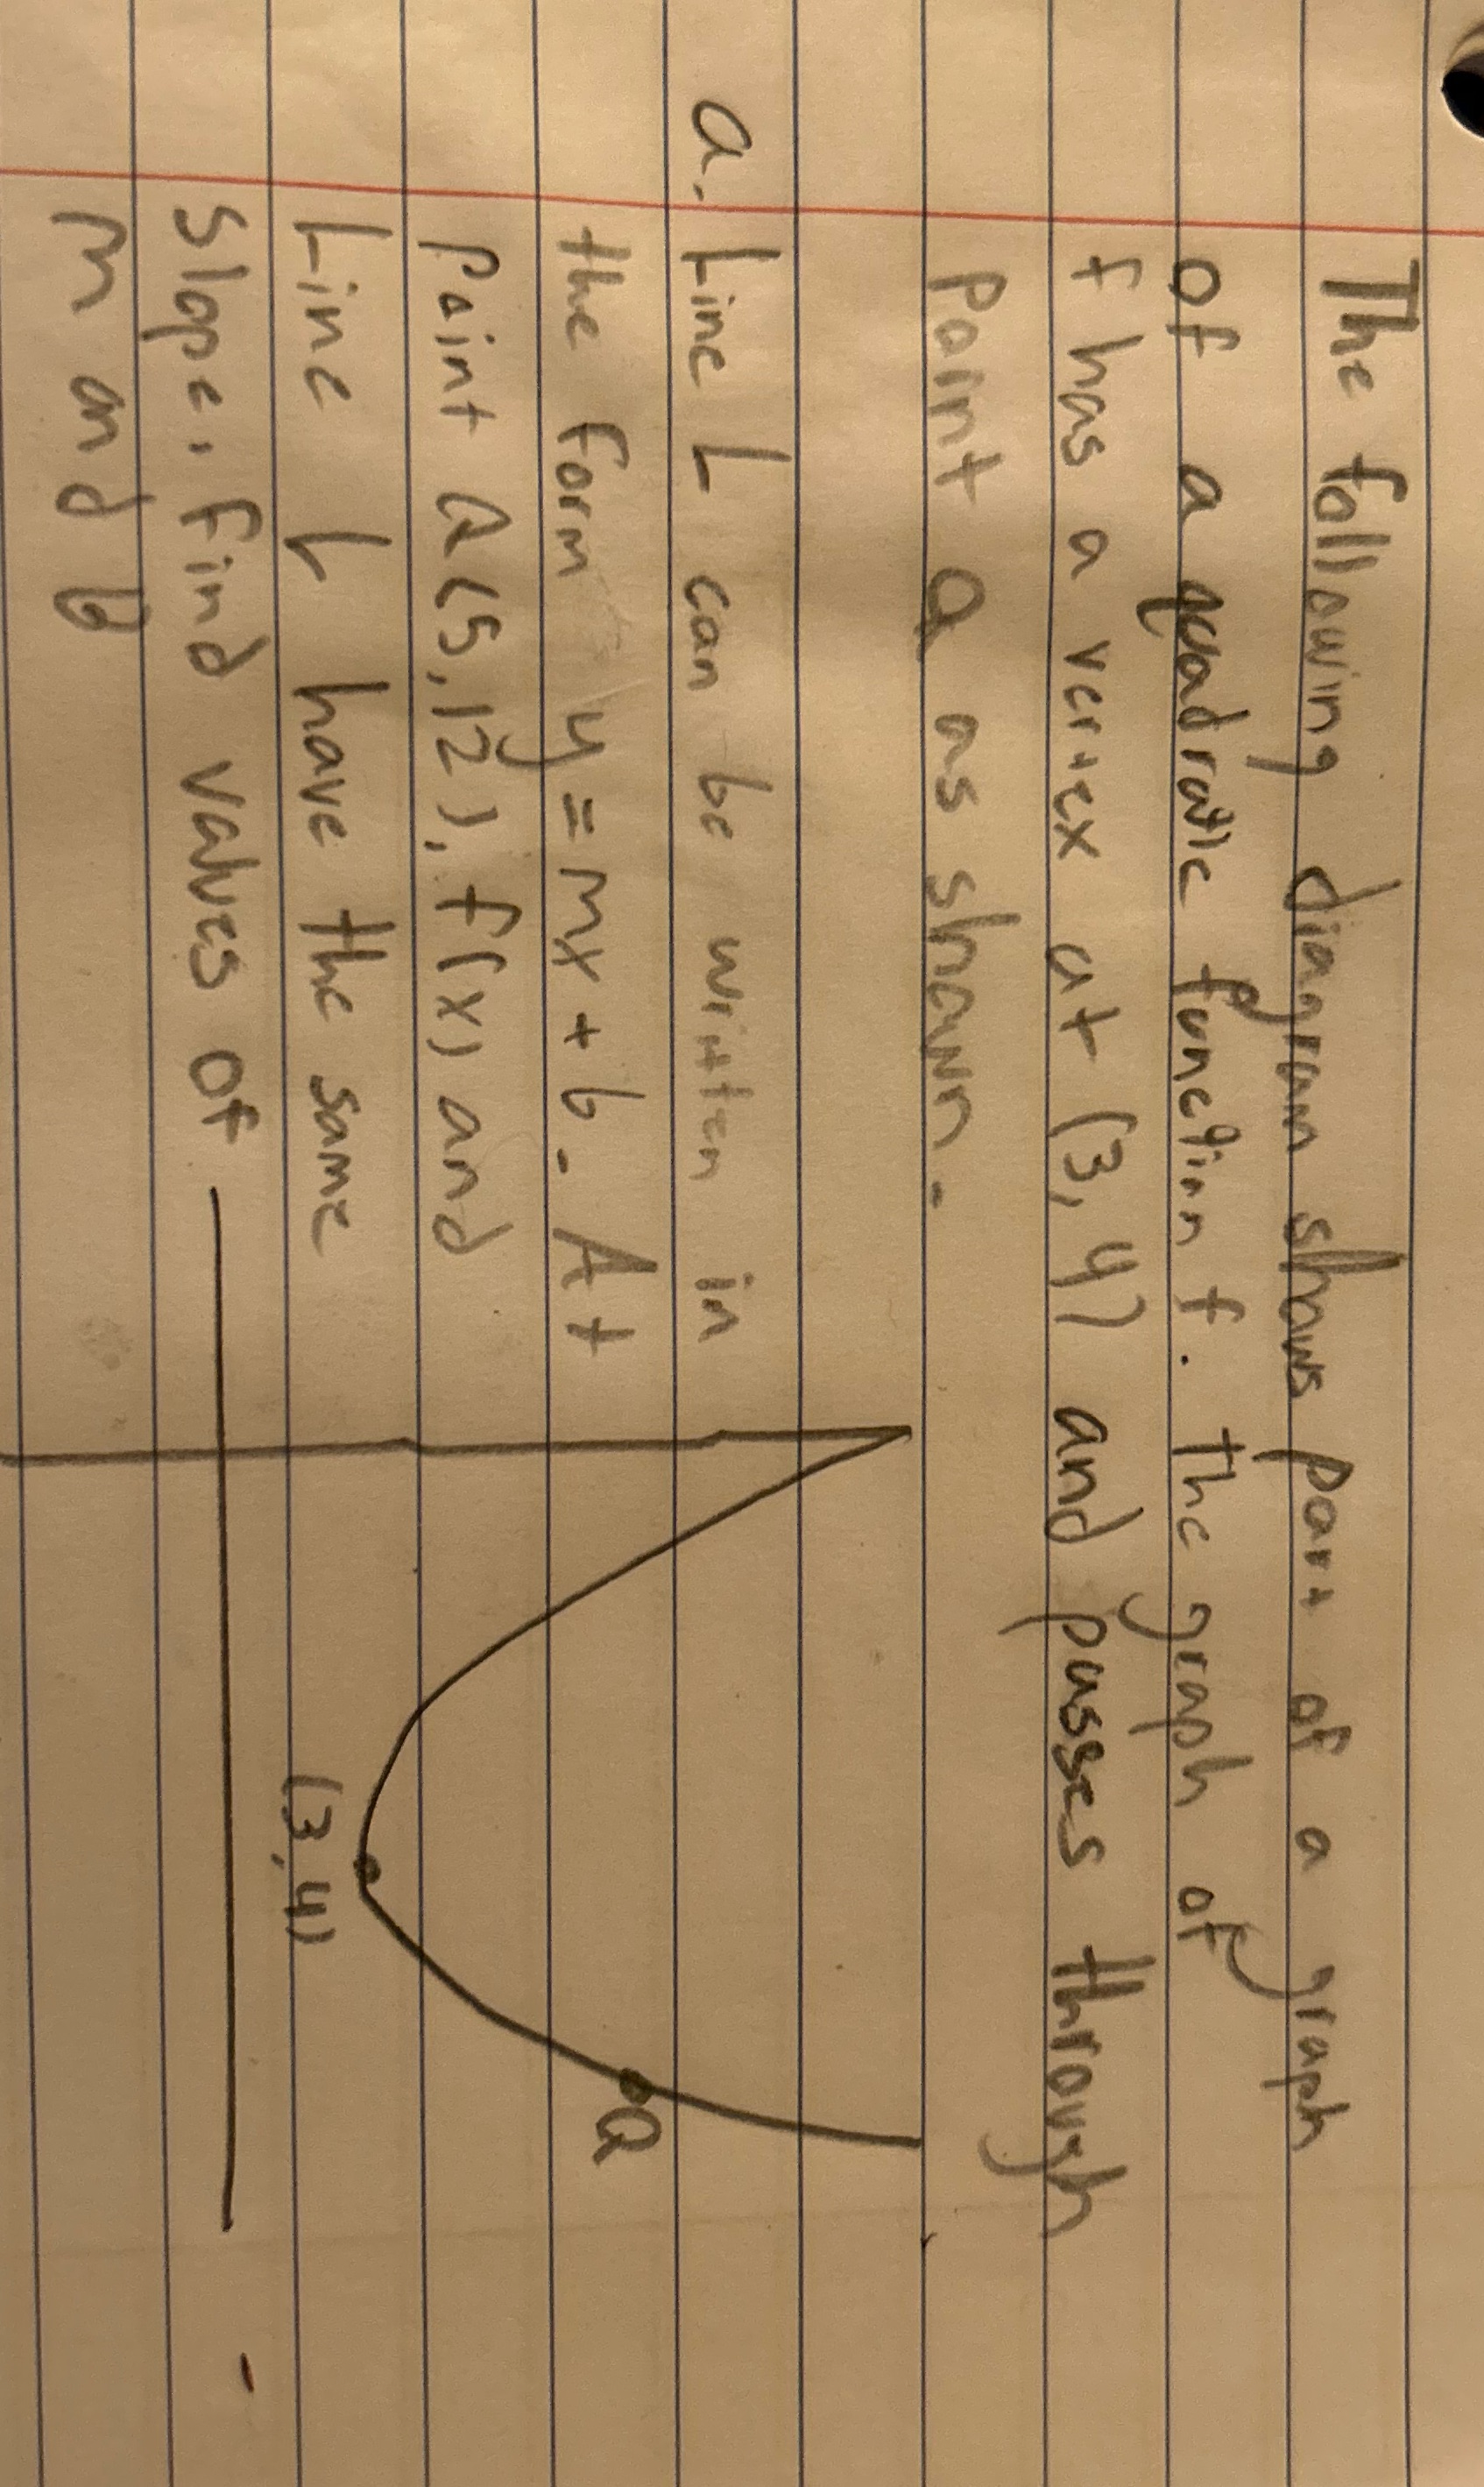 The following diagram shows part of a graph
of a quadratic function f. The graph of
f has a vertex at (3,4) and passes through
point Q as shown.
a. Line L can be written in
the form y = mx + b. At
point Q(5,12), f(x) and
Line L have the same
slope. find values of
m and b
(3,4)
Q